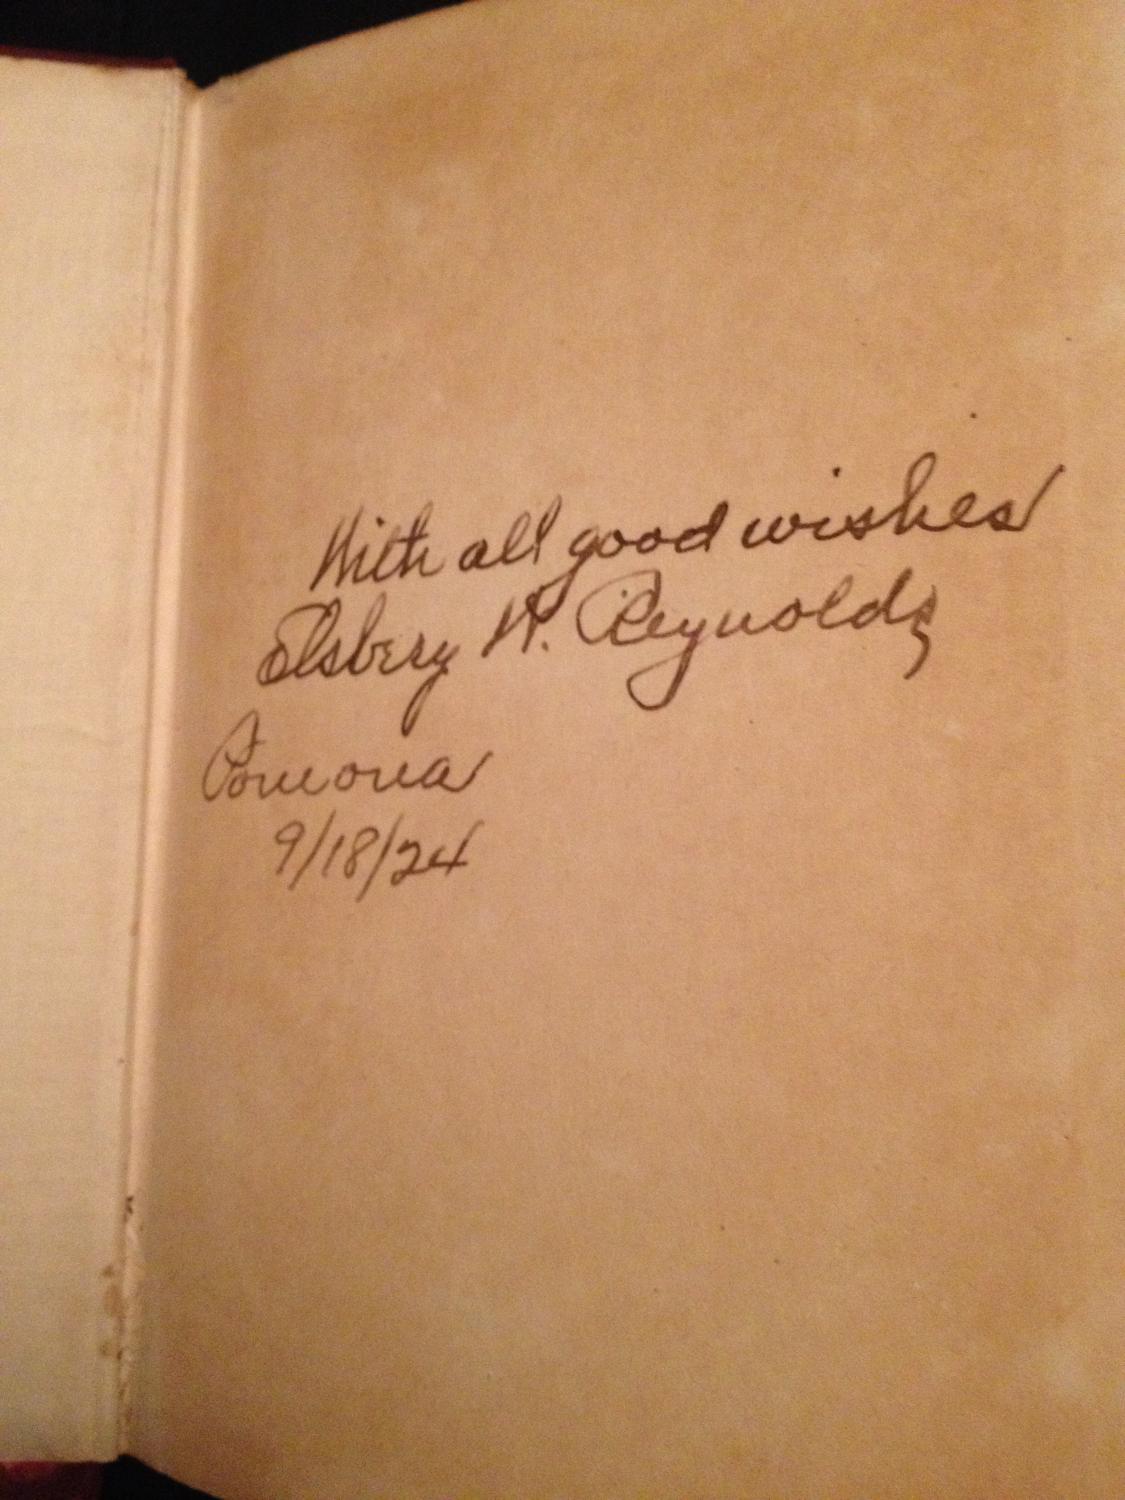 With all good wishes
Elsbery W. Reynolds
Pomona
9/18/24